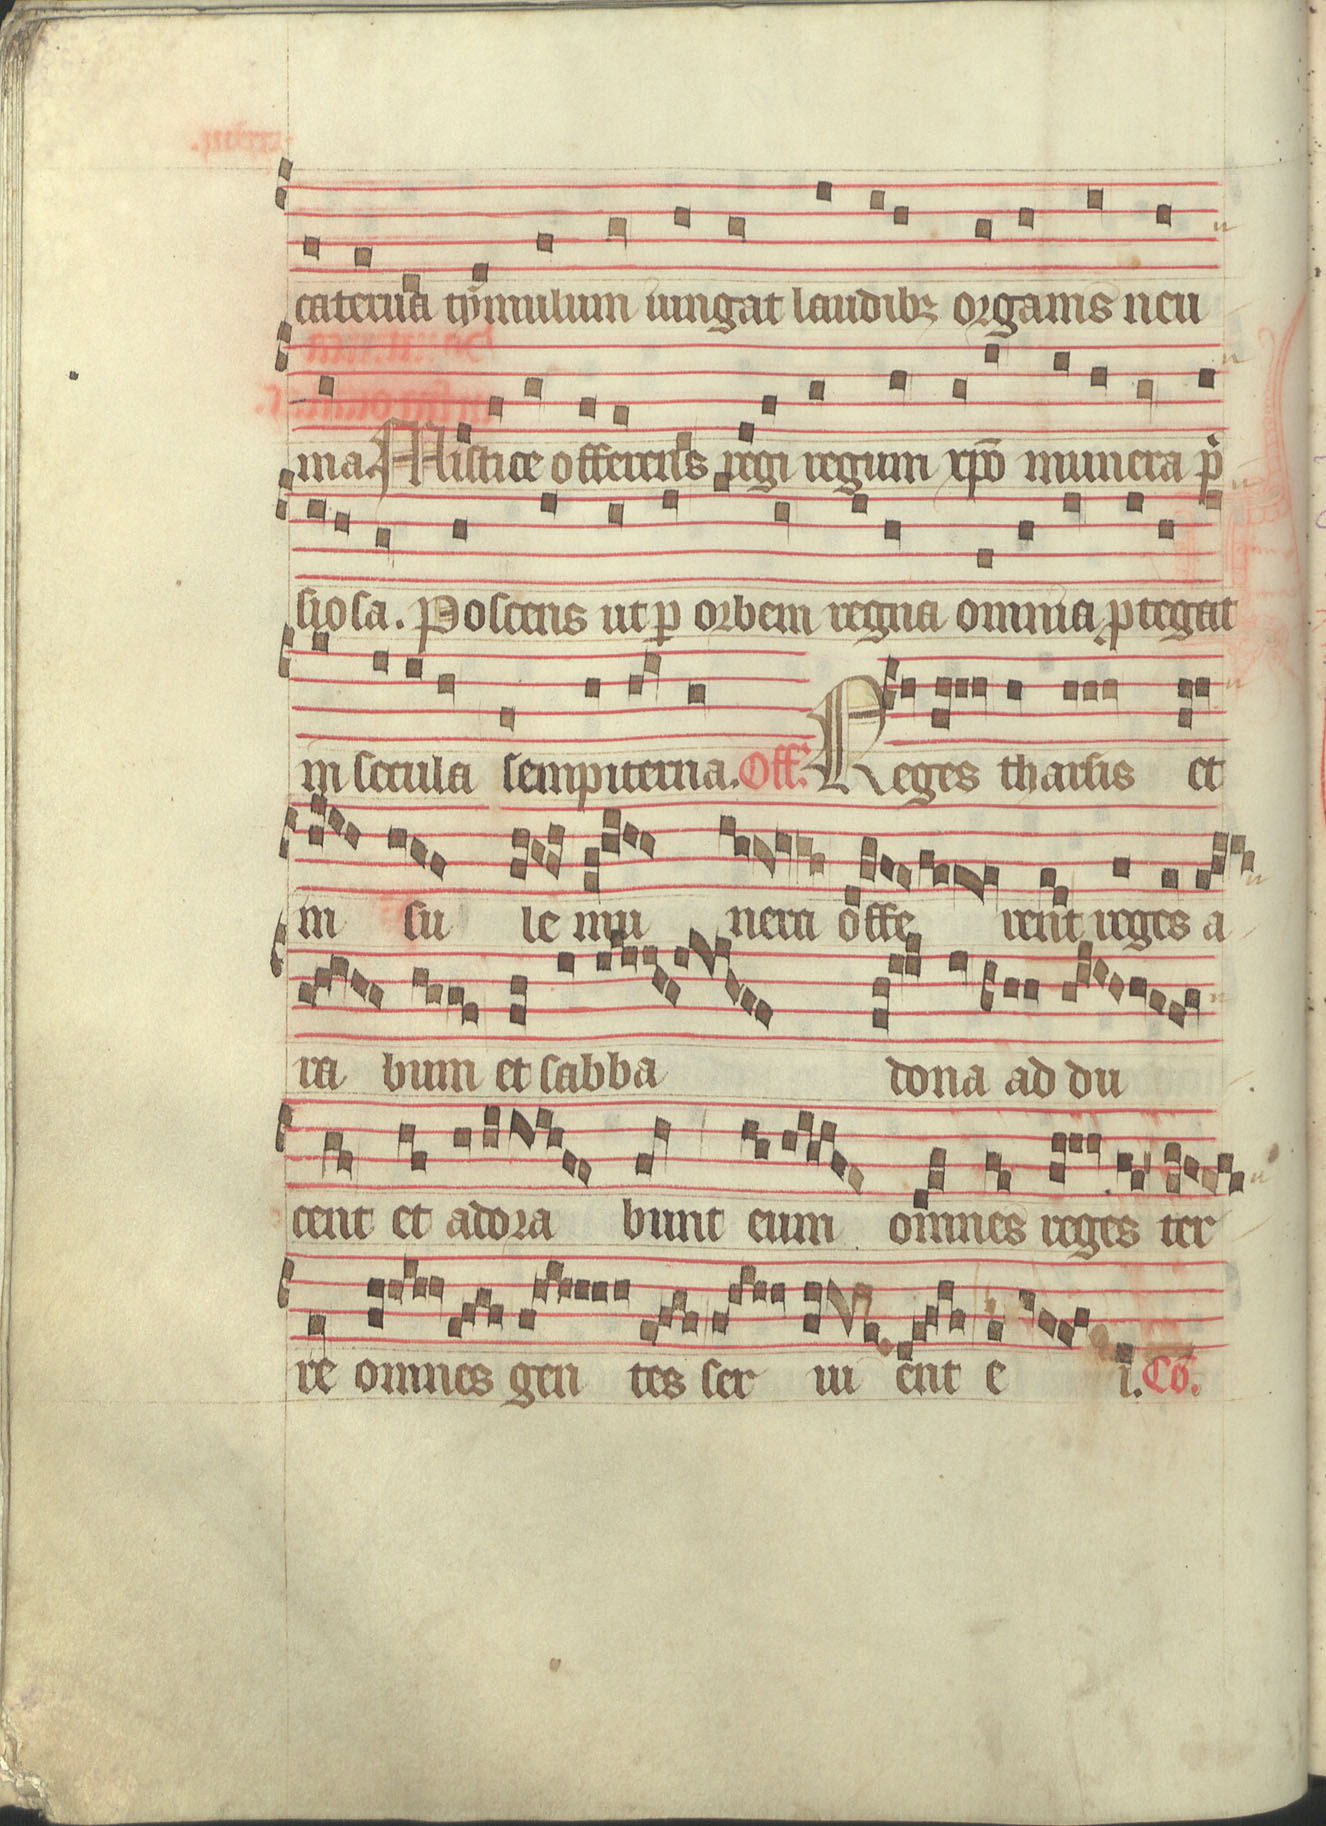 caterua tỹmulum iungat laudibꝫ organis neu
ma. Mistice offerens regi regum xp̄o munera p̄
siosa. Poscens ut ꝑ orbem regna omnia ꝓtegat
in secula sempiterna. Off. Reges tharsis et
in su le mu nera offe rent reges a
ra bum et sabba dona ad du
cent et adora bunt eum omnes reges ter
re omnes gen tes ser ui ent e i. Co.